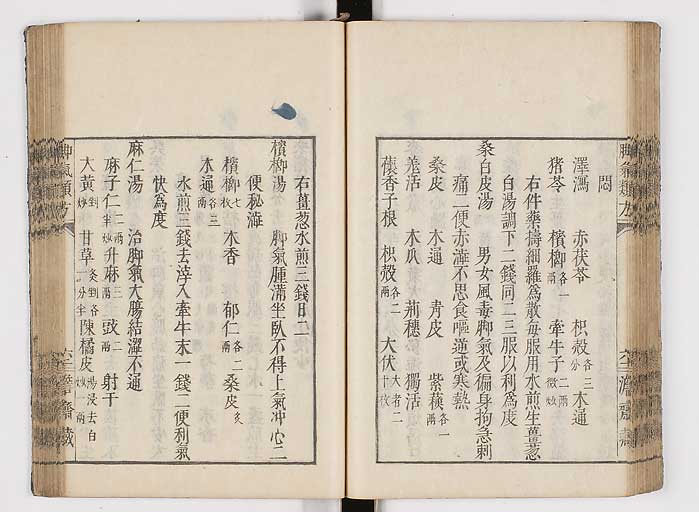 悶
澤瀉 赤茯苓 枳殻各三分 木通
猪苓 檳榔各一兩 牽牛子二兩微炒
右件藥擣細羅爲散每服用水煎生薑葱
白湯調下二錢同二三服以利爲度
桑白皮湯 男女風毒脚氣及偏身拘急刺
痛二便赤澁不思食嘔逆或寒熱
桑皮 木通 青皮 紫蘇各一兩
羗活 木瓜 荊穗 獨活
蘹香子根 枳殻各二兩 大伏大者二十枚
脚氣類方
六 濟齋藏
右薑葱水煎三錢日二
檳榔湯 脚氣腫滿坐臥不得上氣冲心二
便秘澁
檳榔七枚 木香 郁仁各二兩 桑皮炙
木通各三兩
水煎三錢去滓入牽牛末一錢二便利氣
快爲度
麻仁湯 治脚氣大腸結澀不通
麻子仁二兩半炒 升麻三兩 豉二兩 射干
大黄剉炒 甘草炙剉各一分半 陳橘皮湯浸去白炒一兩
脚氣類方
六 濟齋藏